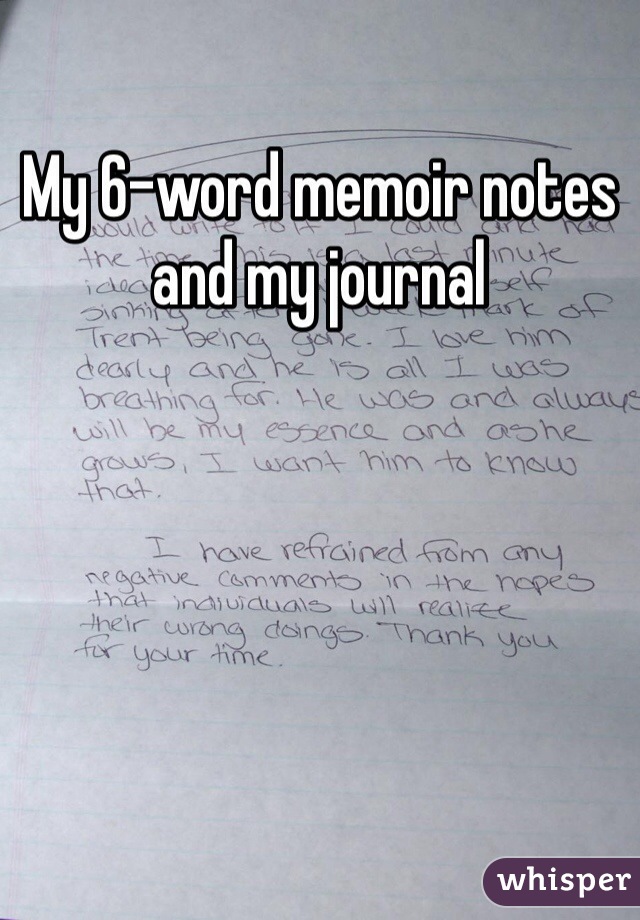 My 6-word memoir notes
and my journal
would write to it I could and had
the time
minute
idea
self
sinking
mark of
Trent being gone. I love him
dearly and he is all I was
breathing for. He was and always
will be my essence and as he
grows, I want him to know
that.
I have refrained from any
negative comments in the hopes
that individuals will realize
their wrong doings. Thank you
for your time.
whisper